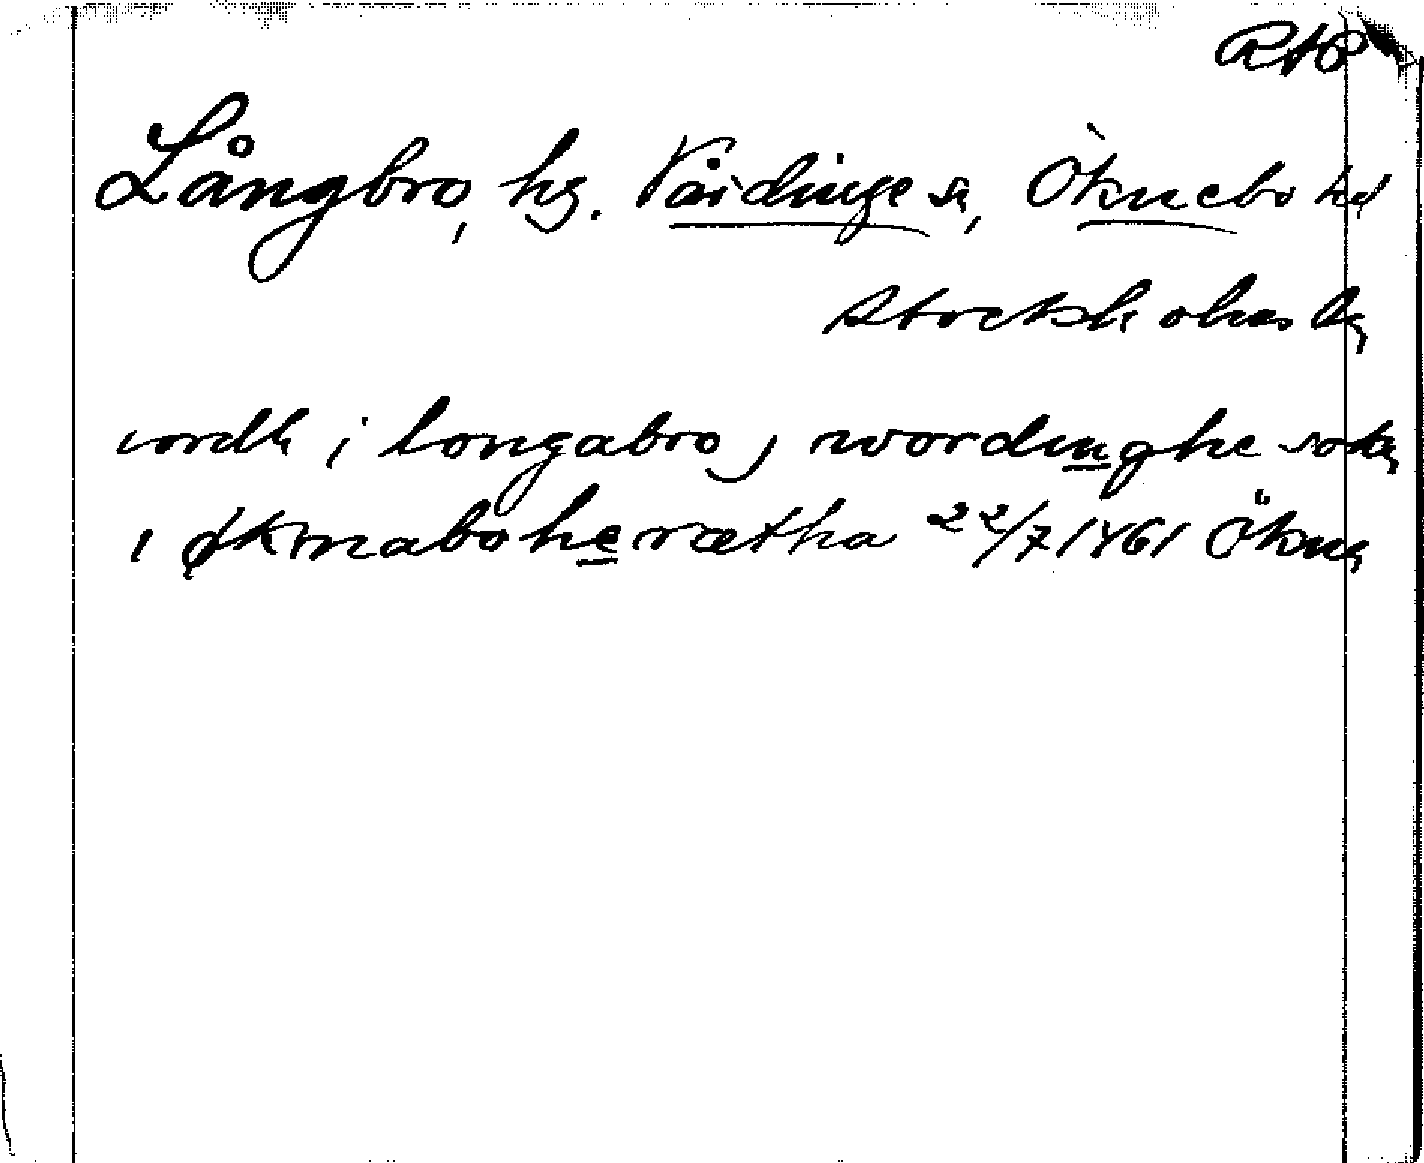 RAP
Långbro, hg. Vårdinge sn, Öknebo hd
Stockholms l
iordh i longabro, wordinghe sokn
i øknaboherætha 22/7 1461 Ökna